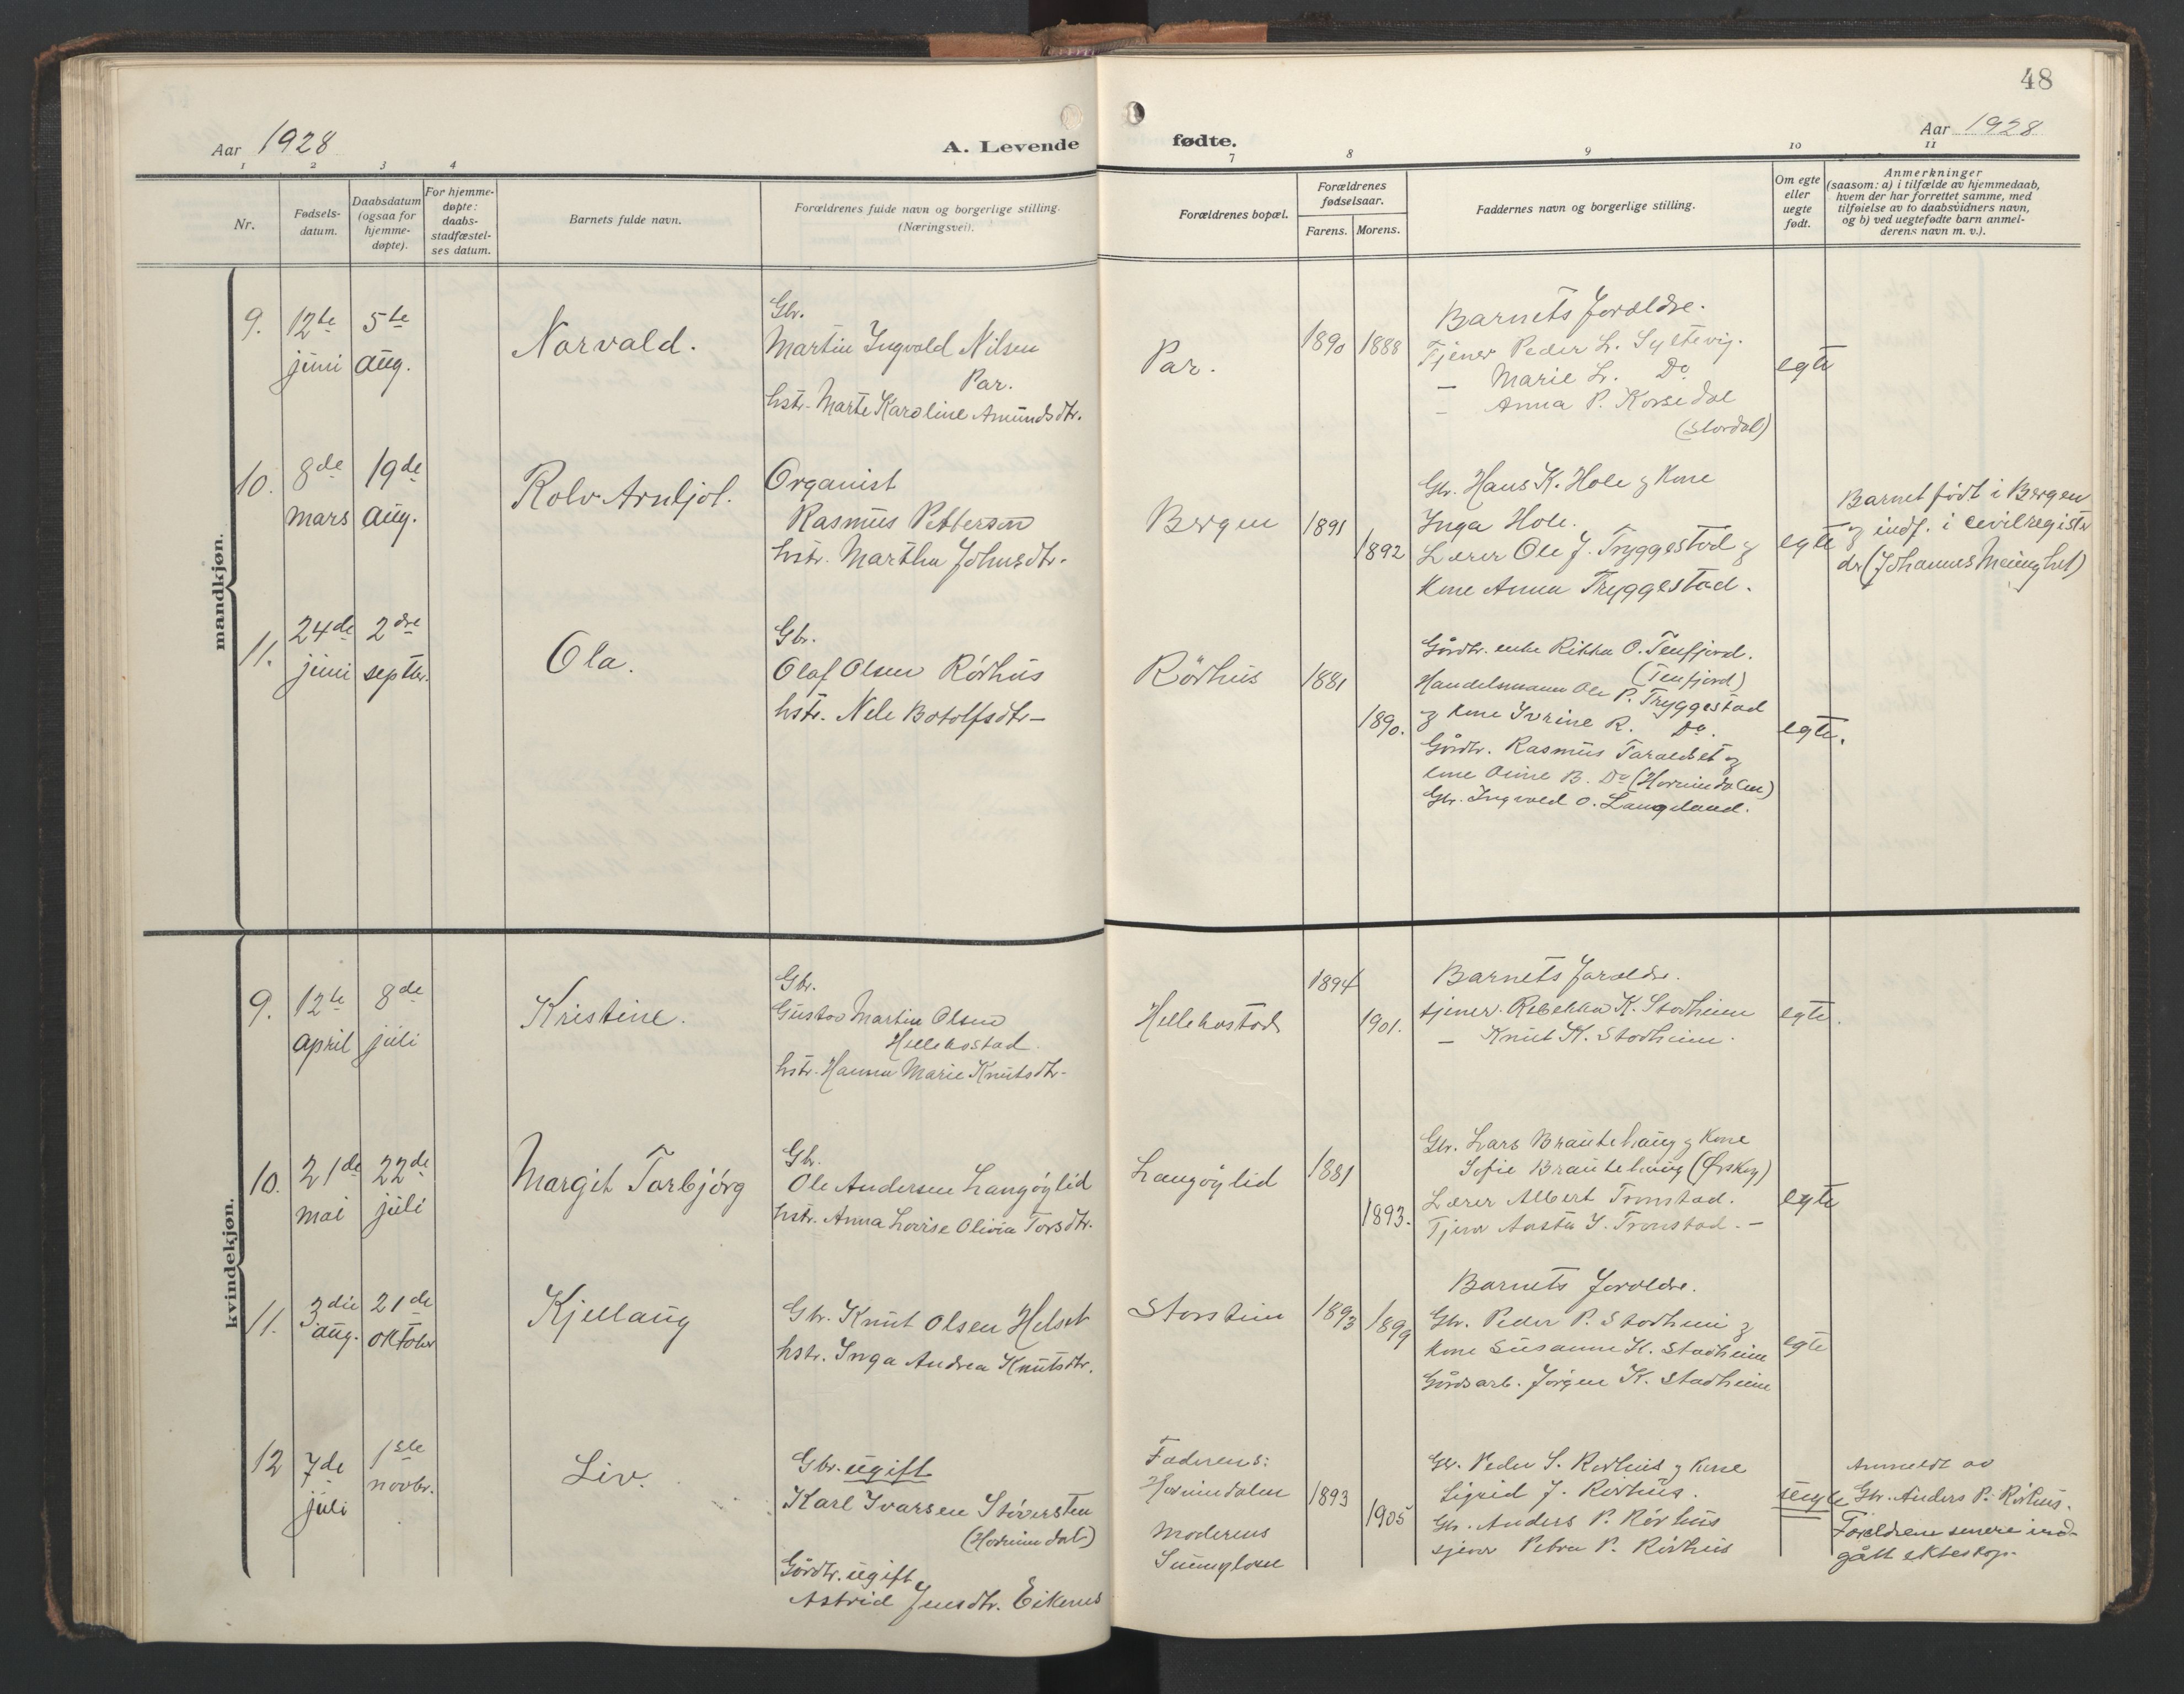 48
Aar 1928
A. Levende
fødte.
Aar 1928
1 2 3 4
7 8 9 10 11
Nr.
Fødsels-
datum.
Daabsdatum
(ogsaa for
hjemme-
døpte).
For hjemme-
døpte:
daabs-
stadfæstel-
ses datum.
Barnets fulde navn.
Forældrenes fulde navn og borgerlige stilling.
(Næringsvei).
Forældrenes bopæl.
Forældrenes
fødselsaar.
Farens. Morens.
Faddernes navn og borgerlige stilling.
Om egte
eller
uegte
født.
Anmerkninger
(saasom: a) i tilfælde av hjemmedaab,
hvem der har forrettet samme, med
tilføielse av to daabsvidners navn,
og b) ved uegtefødte barn anmel-
derens navn m. v.).
mandkjøn.
9.
12te
juni
5te
aug.
Norvald.
Gbr.
Martin Ingvald Nilsen
Par.
hstr. Marte Karoline Amundsdtr.
Par.
1890
1888
Barnets foreldre.
Tjener Peder L. Syltevig.
– Marie L. Do
– Anna P. Korsedal
(Stordal)
egte
10.
8de
mars
19de
aug.
Rolv Arnljot.
Organist
Rasmus Petterson
hstr. Martha Johnsdtr.
Bergen
1891
1892
Gbr. Hans K. Hole og kone
Inga Hole.
Lærer Ole J. Tryggestad og
kone Anna Tryggestad.
egte
Barnet født i Bergen
og indf. i civilregister
der (Johannes Menighet)
11.
24de
juni
2dre
septbr.
Ola.
Gbr.
Olaf Olsen Rørhus
hstr. Nele Botolfsdtr.
Rørhus
1881
1890.
Gårdbr. enke Rikka O. Tenfjord.
(Tenfjord)
Handelsmann Ole P. Tryggestad
og kone Ivrine R. Do.
Gårdbr. Rasmus Taraldset og
kone Oline B. Do (Hornindalen)
Gbr. Ingvald O. Langeland.
egte.
kvindekjøn.
9.
12te
april
8de
juli
Kristine.
Gbr.
Gustav Martin Olsen
Hellebostad.
hstr. Hanna Marie Knutsdtr.
Hellebostad
1894
1901.
Barnets foreldre.
tjener. Rebekka K. Stadheim
– Knut K. Stadheim.
egte.
10.
21de
mai
22de
juli
Margit Torbjørg
Gbr.
Ole Andersen Langøylid
hstr. Anna Lovise Olivia Torsdtr.
Langøylid
1881
1893.
Gbr. Lars Brautehaug og kone
Sofie Brautehaug (Ørskog)
Lærer Albert Tronstad.
Tjener Aasta I. Tronstad. –
egte
11.
3die
aug.
21de
oktober
Kjellaug
Gbr. Knut Olsen Helset
hstr. Inga Andrea Knutsdtr.
Storstein
1893
1899
Barnets foreldre.
Gbr. Peder P. Stadheim og
kone Susanne K. Stadheim
Gårdsarb. Jørgen K. Stadheim
egte
12
7de
juli
1ste
novbr.
Liv.
Gbr. ugift
Karl Ivarsen Støversten
(Hornindal)
Gårdbr. ugift
Astrid Jensdtr. Eikenes
Faderens:
Hornindalen
Moderens
1893
1905
Gbr. Peder S. Rørhus og kone
Sigrid J. Rørhus.
Gbr. Anders P. Rørhus
tjener Petra P. Rørhus
uegte
Anmeldt av
Gbr. Anders P. Rørhus.
Foreldrene senere ind-
gått ekteskap.